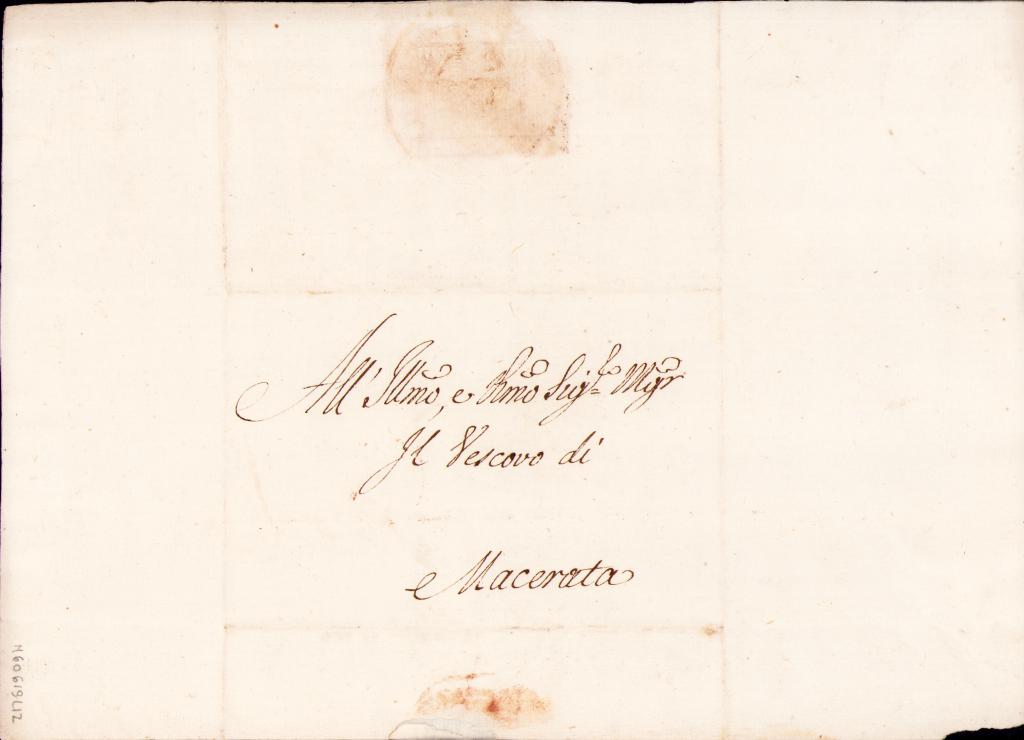 All' Illmo, e Rmo Sigr. Mgr
Il Vescovo di
Macerata